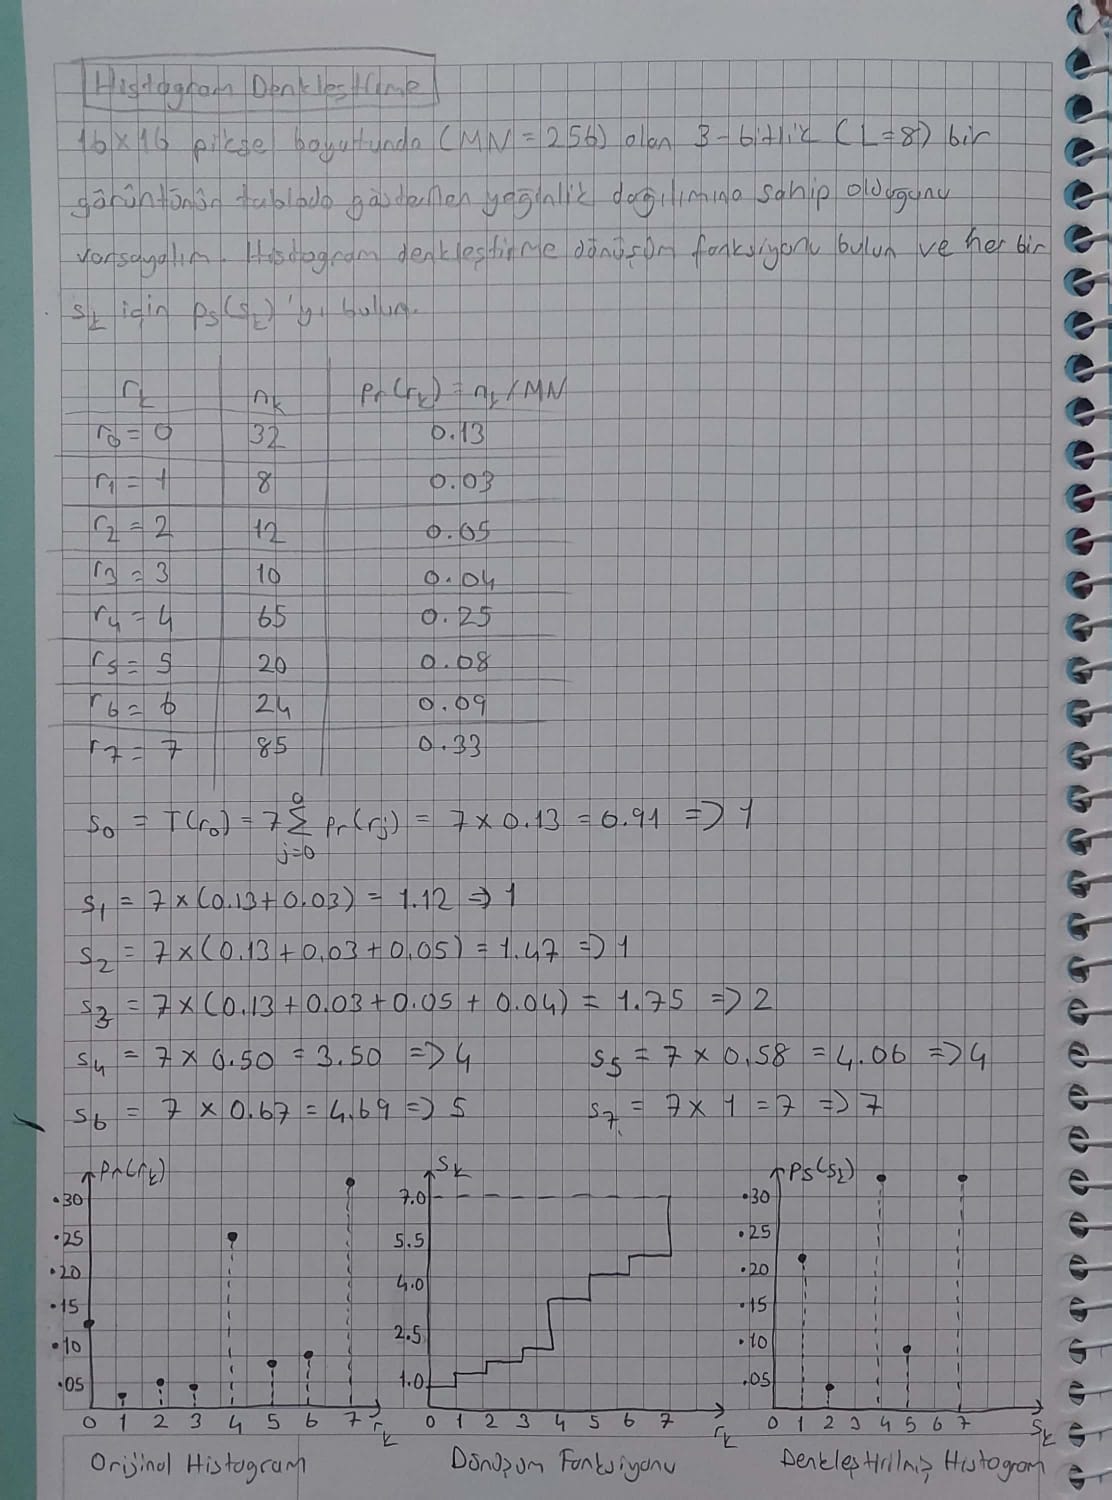 Histogram Denkleştirme
16x16 piksel boyutunda (MN=256) olan 3-bitlik (L=8) bir
görüntünün tabloda gösterilen yeğinlik dağılımına sahip olduğunu
varsayalım. Histogram denkleştirme dönüşüm fonksiyonu bulun ve her bir
sk için ps(sk)'yı bulun.
rk nk pr(rk) = nk/MN
r0 = 0 32 0.13
r1 = 1 8 0.03
r2 = 2 12 0.05
r3 = 3 10 0.04
r4 = 4 65 0.25
r5 = 5 20 0.08
r6 = 6 24 0.09
r7 = 7 85 0.33
s0 = T(r0) = 7 0Σj=0 pr(rj) = 7 x 0.13 = 0.91 => 1
s1 = 7 x (0.13 + 0.03) = 1.12 => 1
s2 = 7 x (0.13 + 0.03 + 0.05) = 1.47 => 1
s3 = 7 x (0.13 + 0.03 + 0.05 + 0.04) = 1.75 => 2
s4 = 7 x 0.50 = 3.50 => 4 s5 = 7 x 0.58 = 4.06 => 4
s6 = 7 x 0.67 = 4.69 => 5 s7 = 7 x 1 = 7 => 7
pr(rk)
.30
.25
.20
.15
.10
.05
0 1 2 3 4 5 6 7 rk
Orijinal Histogram
sk
7.0
5.5
4.0
2.5
1.0
0 1 2 3 4 5 6 7 rk
Dönüşüm Fonksiyonu
ps(sk)
.30
.25
.20
.15
.10
.05
0 1 2 3 4 5 6 7 sk
Denkleştirilmiş Histogram